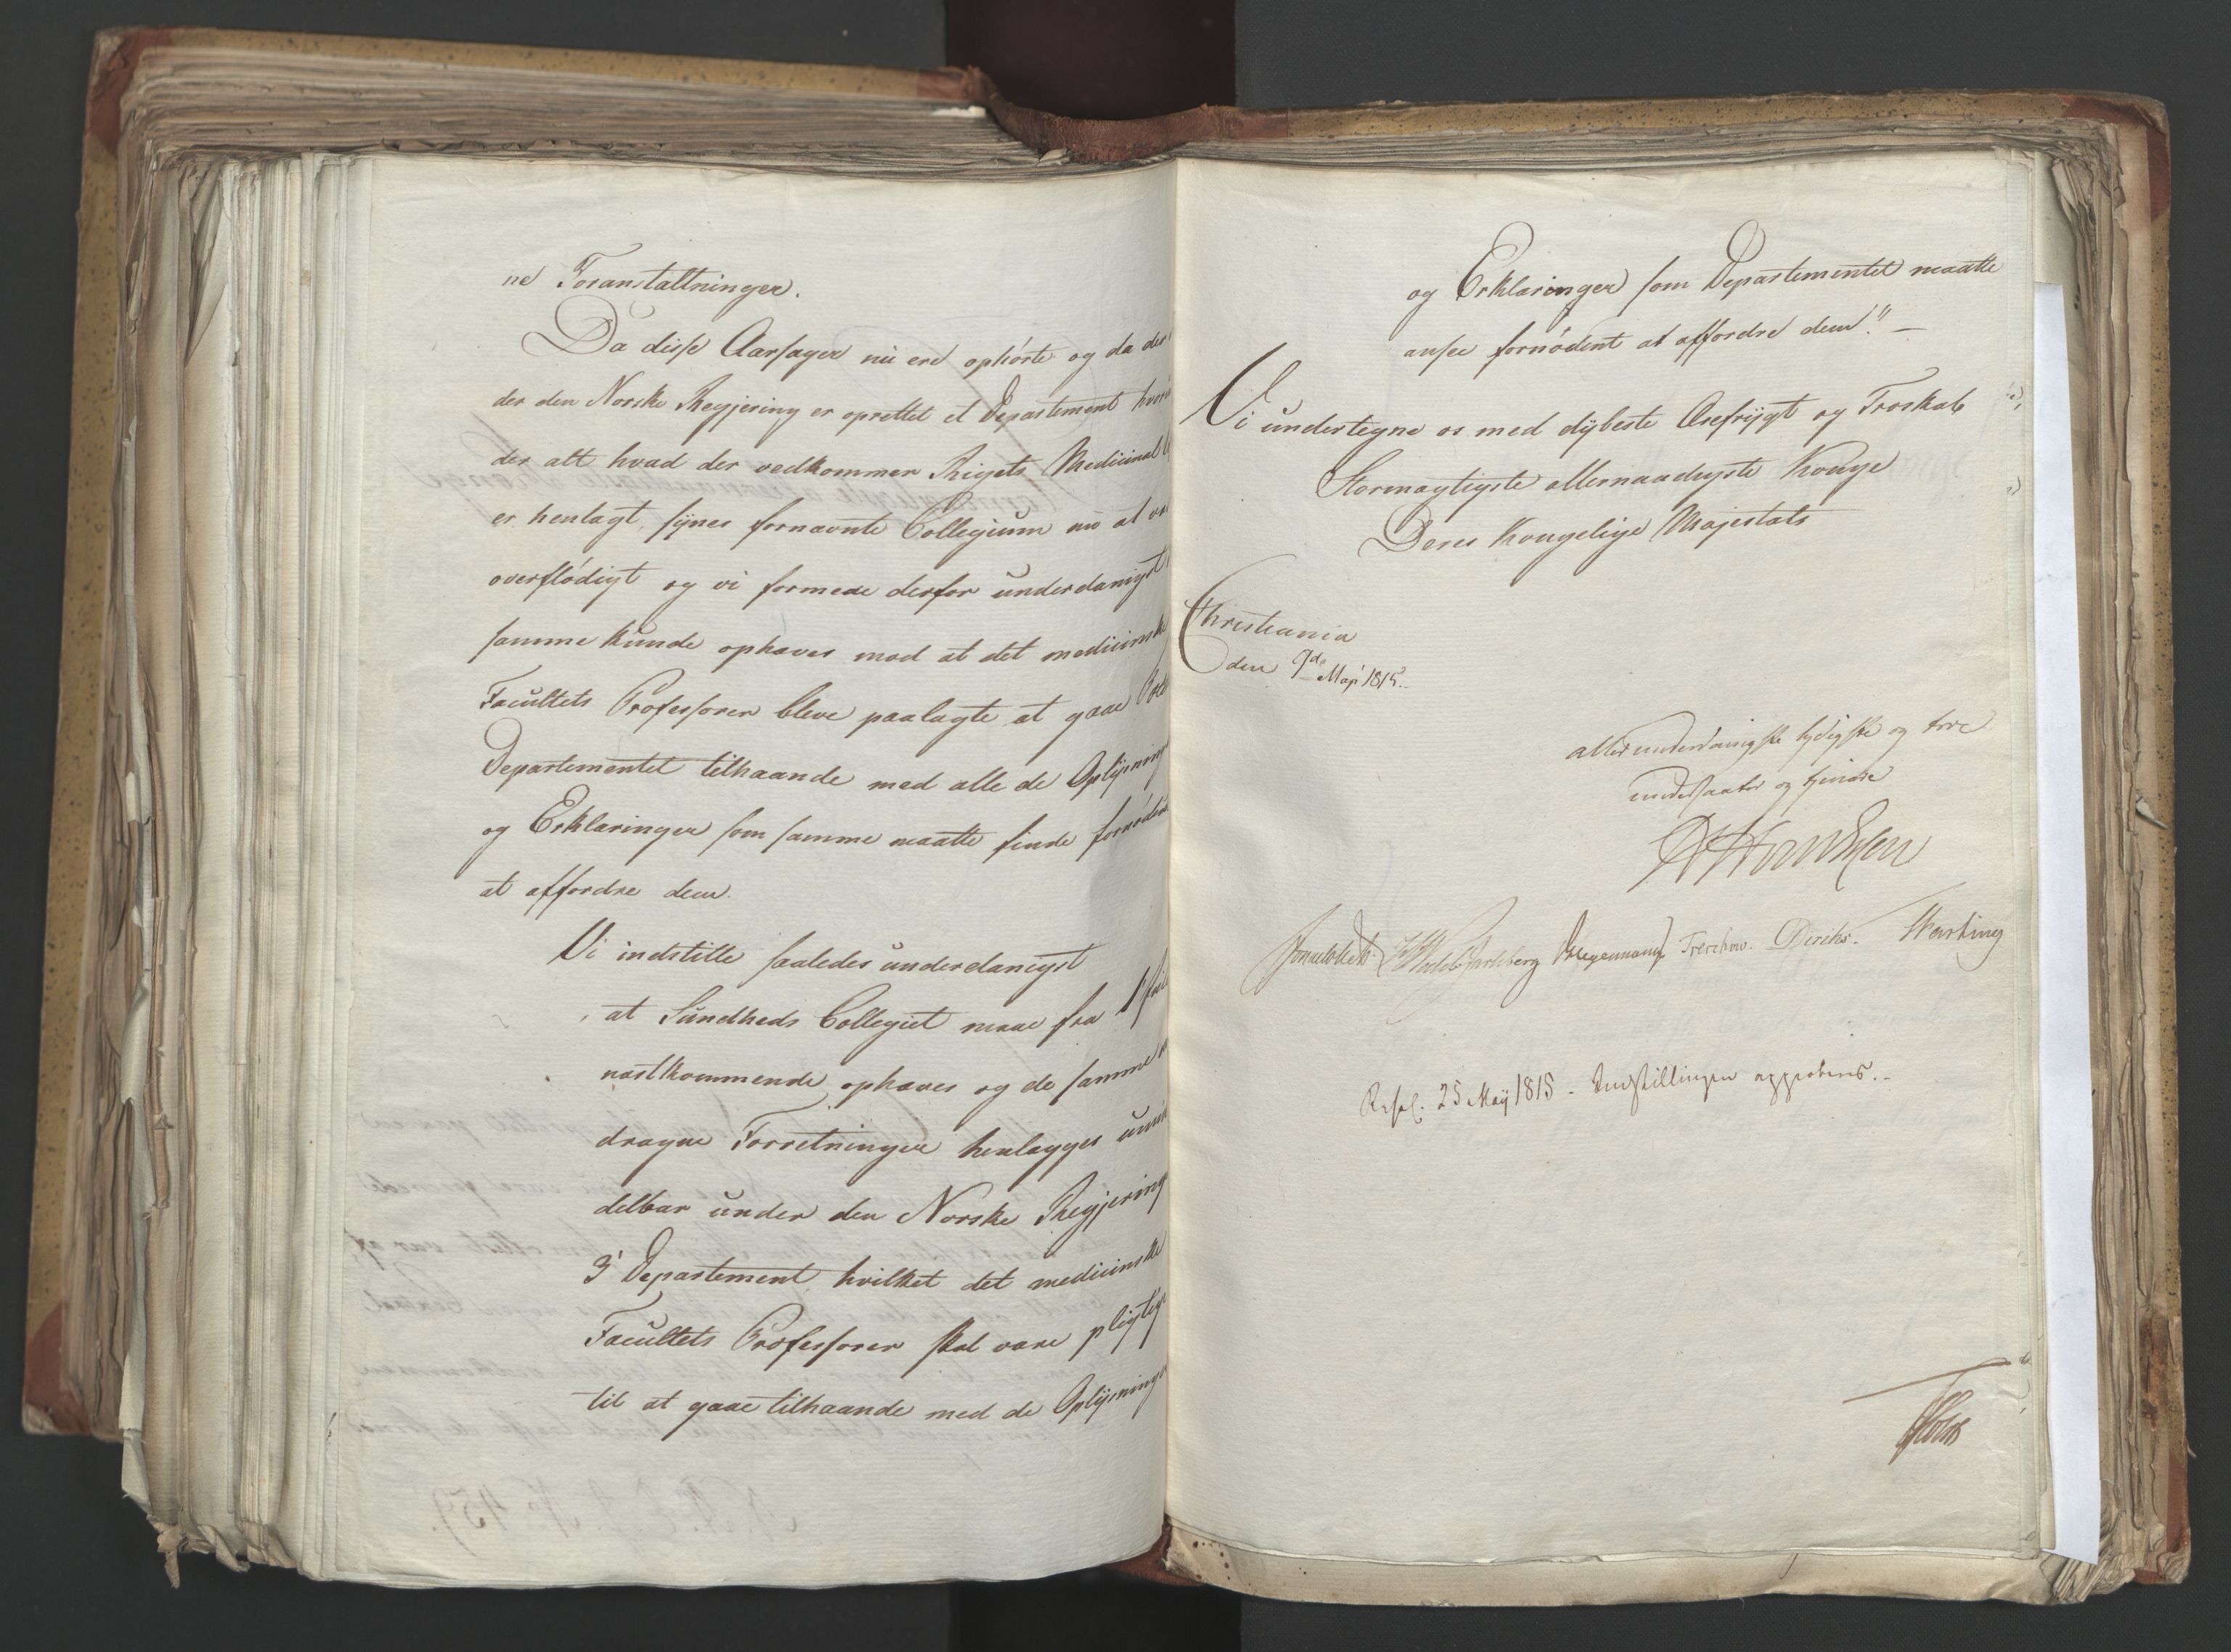 ne Foranstaltninger.
Da disse Aarsager nu ere ophørte og da der
der den Norske Regjering er oprettet et Departement
der alt hvad der vedkommer Rigets Medicinal
er henlagt, synes fornævnte Collegium nu at
overflødigt og vi formene derfor underdanigst
samme kunde ophæves mod at det medicinske
Facultets Professorer bleve paalagte at gaae
Departementet tilhaande med alle de Oplysning
og Erklæringer som samme maatte finde fornøden
at affordre dem.
Vi indstille saaledes underdanigst
at Sundheds Collegiet maae fra 1
næstkommende ophæves og de samme
dragne Forretninger henlægges umid
delbar under den Norske Regjering
3' Departement hvilket det medicinske
Facultets Professorer skal være pligtig
til at gaae tilhaande med de Oplysninger
og Erklæringer som Departementet maatte
ansee fornødent at affordre dem." —
Vi undertegne os med dybeste Ærefrygt og Troskab
Stormægtigste allernaadigste Konge
Deres Kongelige Majestæts
Christiania
den 9de May 1815.
allerunderdanigste lydigste og troe
undersaatter og tjenere
Sommerhielm Wedel Jarlsberg Hegermann Treschow. Diriks. Motzfeldt
Resol. 25 May 1815 - Indstillingen approberes.-
Holst